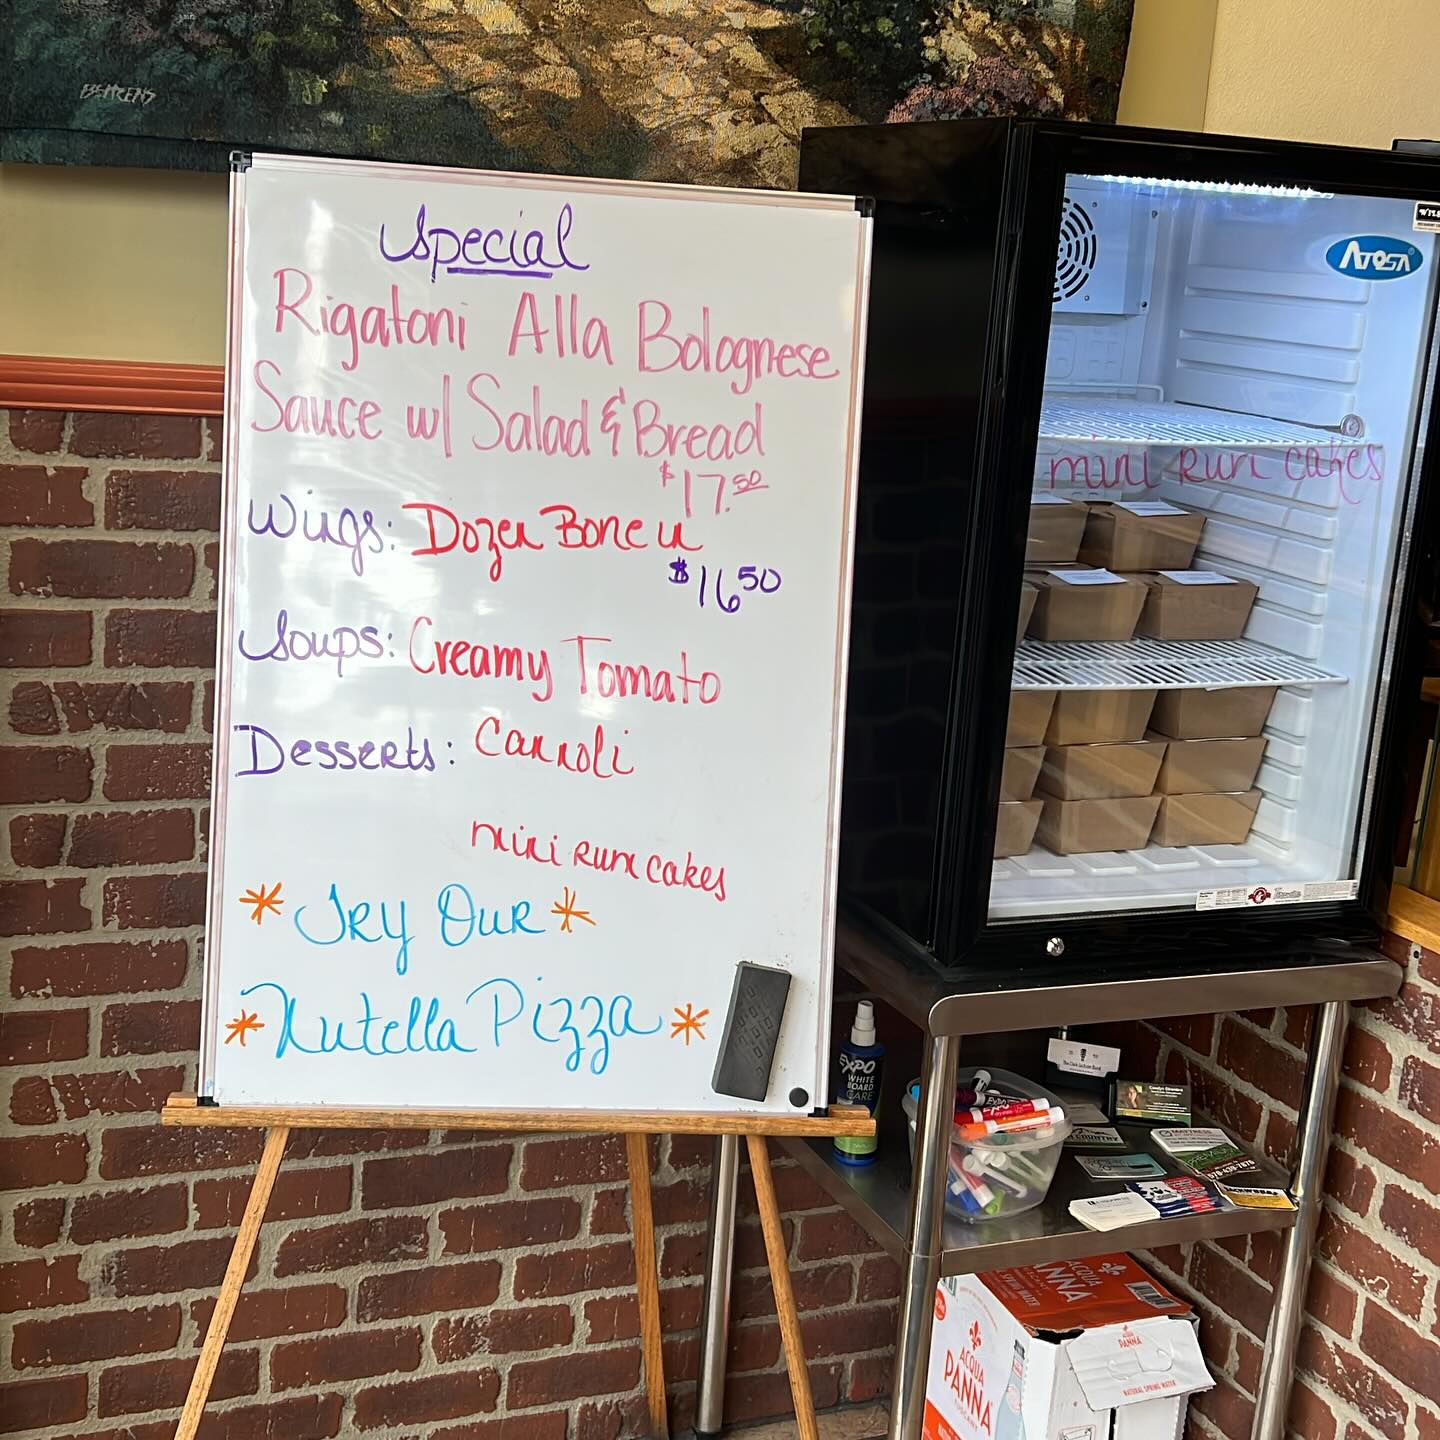 BEHRENS
Special
Rigatoni Alla Bolognese
Sauce w/ Salad & Bread
$17.50
Wings: Dozen Bone in
$16.50
Soups: Creamy Tomato
Desserts: Cannoli
mini Rum cakes
* Try Our *
* Nutella Pizza *
ATOSA
mini Rum cakes
EXPO
WHITE
BOARD
CARE
EXPO
ACQUA
PANNA
ACQUA
PANNA
TUSCANY
ACQUA
PANNA
NATURAL SPRING WATER